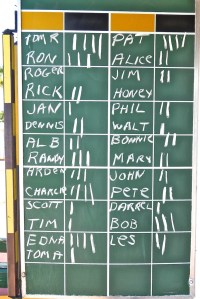 TOM R
RON
ROGER
RICK
JAN
DENNIS
AL B
RANDY
ARDEN
CHARLIE
SCOTT
TIM
EDNA
TOM A
PAT
ALICE
JIM
HONEY
PHIL
WALT
BONNIE
MARY
JOHN
PETE
DARREL
BOB
LES